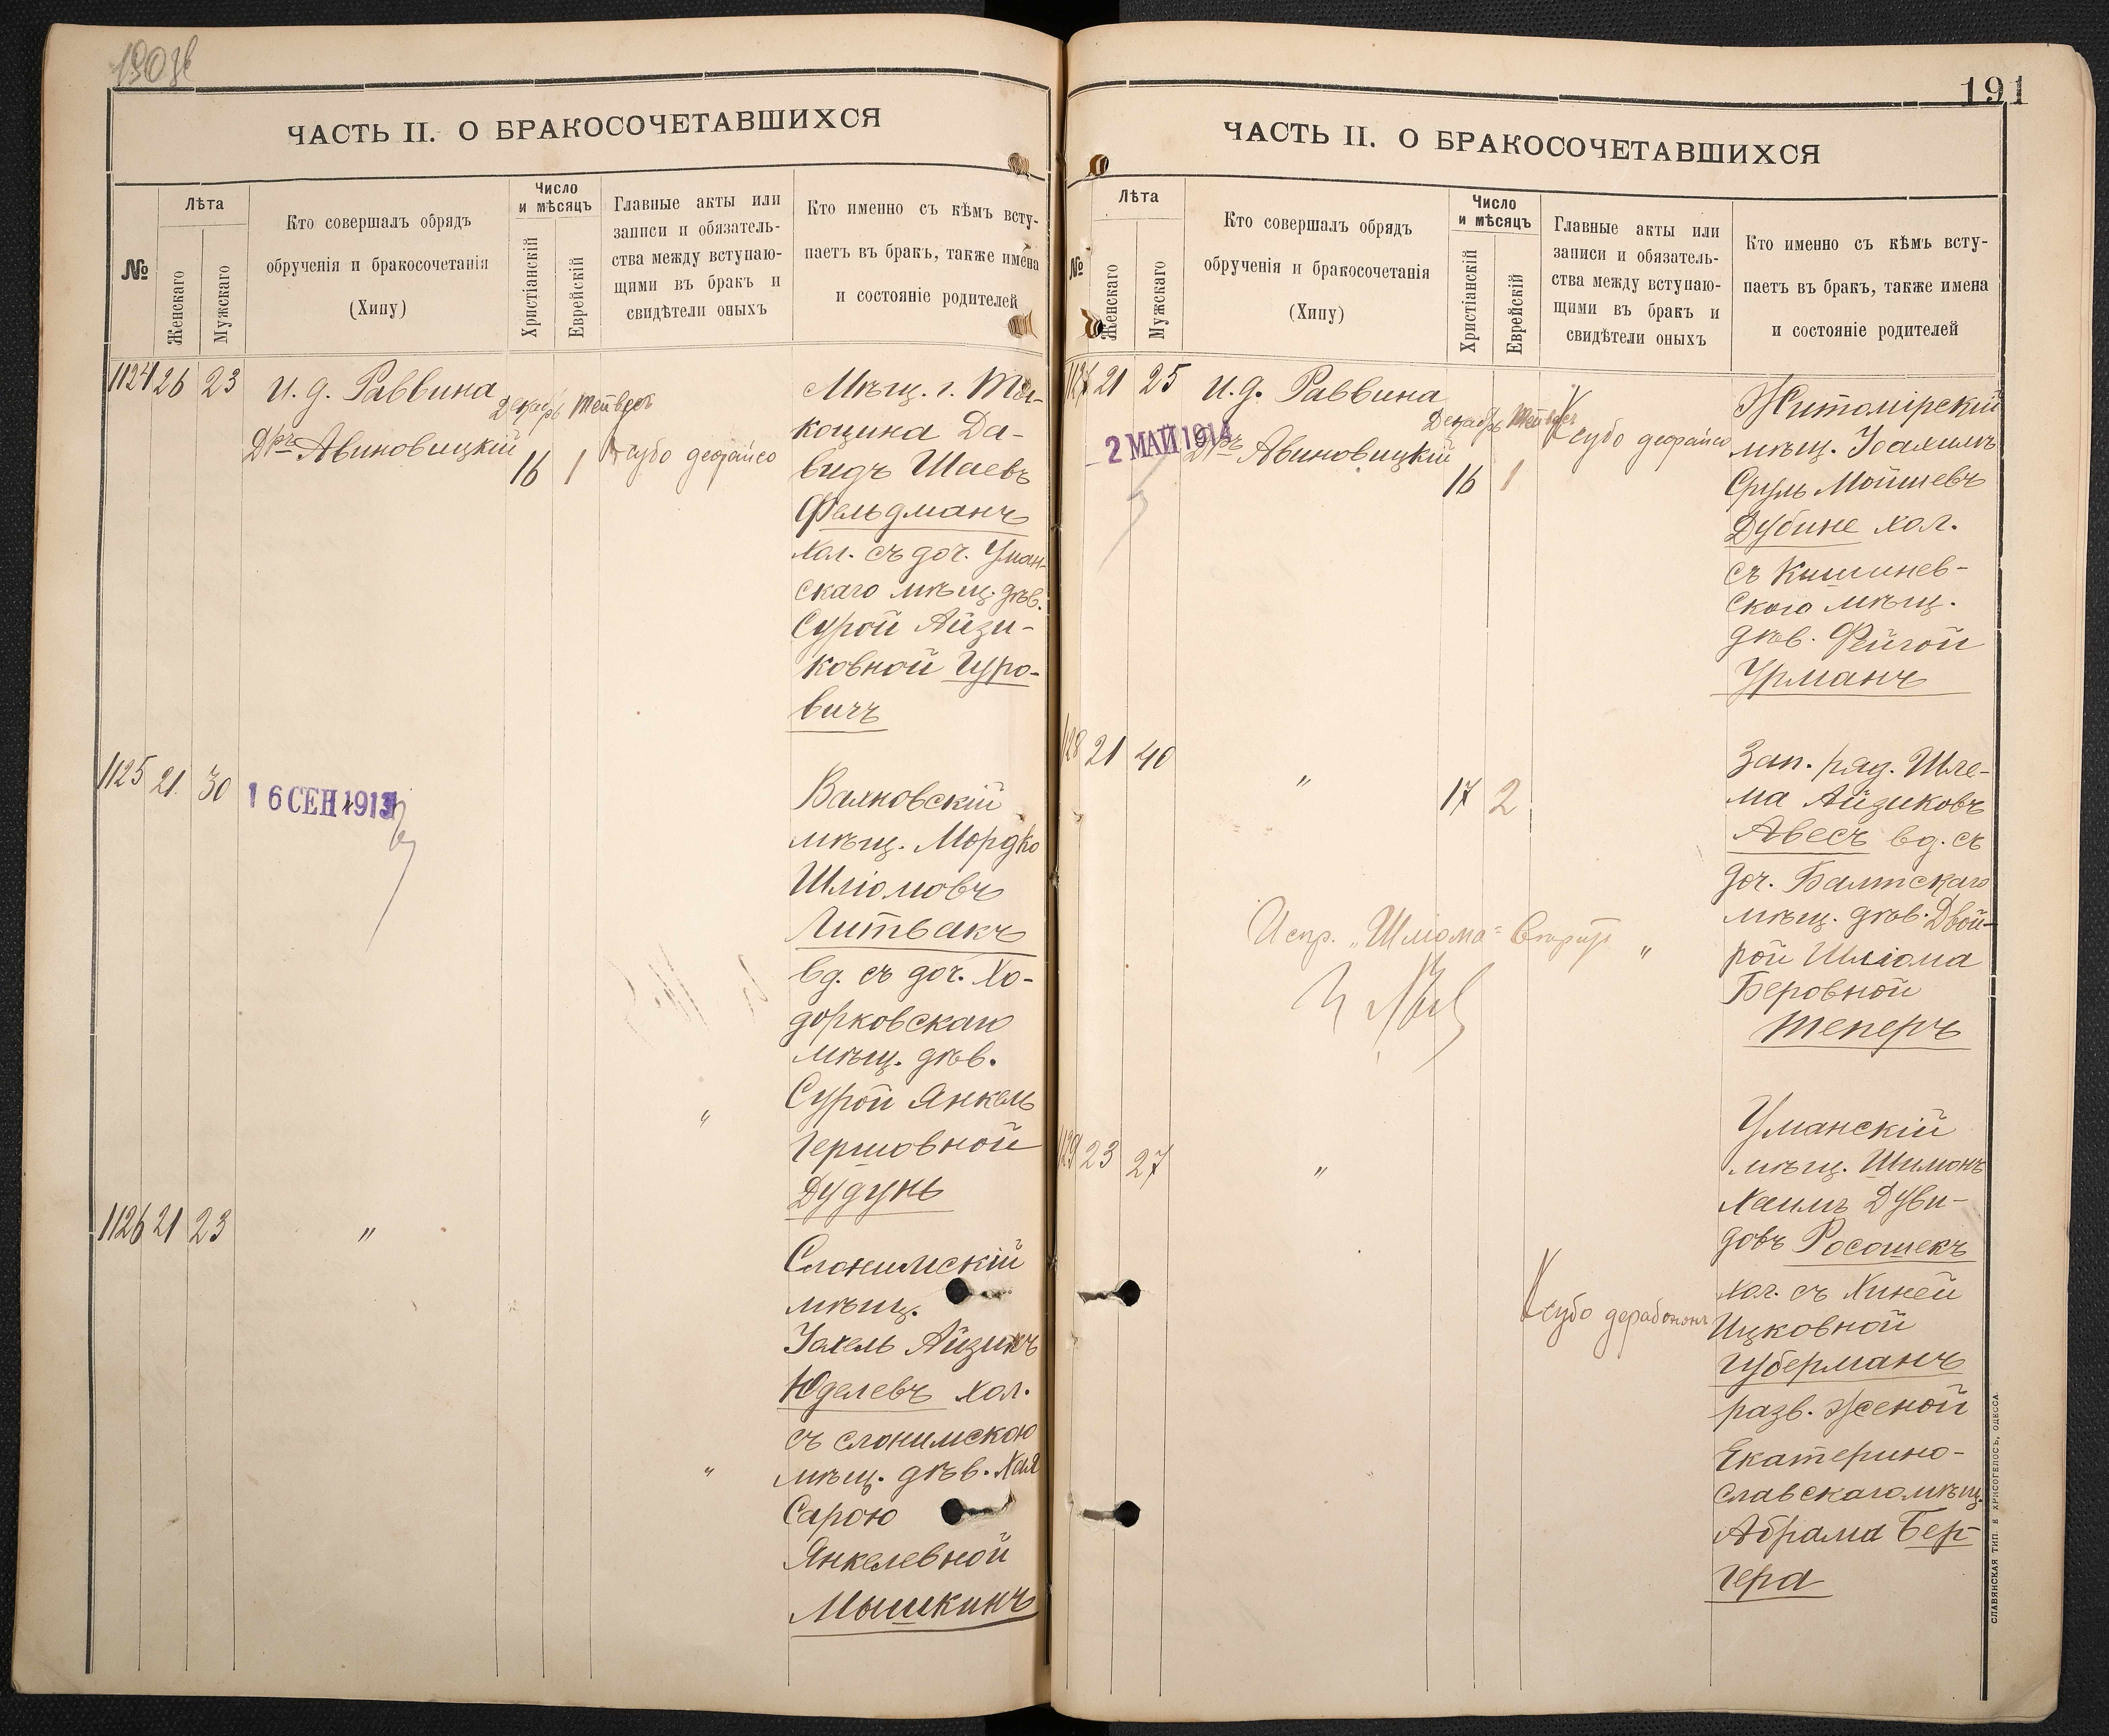 190 об
ЧАСТЬ II. О БРАКОСОЧЕТАВШИХСЯ
№
Лѣта
Женскаго
Мужскаго
Кто совершалъ обрядъ
обрученія и бракосочетанія
(Хипу)
Число
и мѣсяцъ
Христіанскій
Еврейскій
Главные акты или
записи и обязатель-
ства между вступаю-
щими въ бракъ и
свидѣтели оныхъ
Кто именно съ кѣмъ всту-
паетъ въ бракъ, также имена
и состояніе родителей
1124 26 23
и. д. Раввина
Дръ Авиновицкій
Декабрь Тейвесъ
16 1
Ксубо деорайсо
Мѣщ. г. Ты-
коцина Да-
видъ Шаевъ
Фельдманъ
хол. съ доч. Уман-
скаго мѣщ. дѣв.
Сурой Айзи-
ковной Гуро-
вичъ
1125 21 30
16 СЕН 1913
Валковскій
мѣщ. Мордко
Шліомовъ
Литвакъ
вд. съ доч. Хо-
дорковскаго
мѣщ. дѣв.
Сурой Янкель
"
Гершовной
Дудунь
1126 21 23
"
Слонимскій
мѣщ.
Іохель Айзикъ
Юделевъ хол.
съ слонимскою
"
мѣщ. дѣв. Хая
Сарою
Янкелевной
Мышкинъ
191
ЧАСТЬ II. О БРАКОСОЧЕТАВШИХСЯ
№
Лѣта
Женскаго
Мужскаго
Кто совершалъ обрядъ
обрученія и бракосочетанія
(Хипу)
Число
и мѣсяцъ
Христіанскій
Еврейскій
Главные акты или
записи и обязатель-
ства между вступаю-
щими въ бракъ и
свидѣтели оныхъ
Кто именно съ кѣмъ всту-
паетъ въ бракъ, также имена
и состояніе родителей
1127 21 25
2 МАЙ 1914
и. д. Раввина
Дръ Авиновицкій
Декабрь Тейвесъ
16 1
Ксубо деорайсо
Житомірскій
мѣщ. Іоахимъ
Сруль Мойшевъ
Дубине хол.
съ Кишинев-
ского мѣщ.
дѣв. Фейгой
Урманъ
1128 21 40
"
17 2
Зап. ряд. Шле-
ма Айзиковъ
Авесъ вд. съ
доч. Балтскаго
мѣщ. дѣв. Двой-
рой Шліома
Беровной
Теперъ
Испр. „Шліома"
"
1129 23 27
"
Ксубо дерабононъ
Уманскій
мѣщ. Шимонъ
Хаимъ Дуви-
довъ Росошекъ
хол. съ Хиней
Ицковной
Губерманъ
разв. женой
Екатерино-
славскаго мѣщ.
Абрама Бер-
гера
СЛАВЯНСКАЯ ТИП. Е ХРИСОГЕЛОСЪ, ОДЕССА.